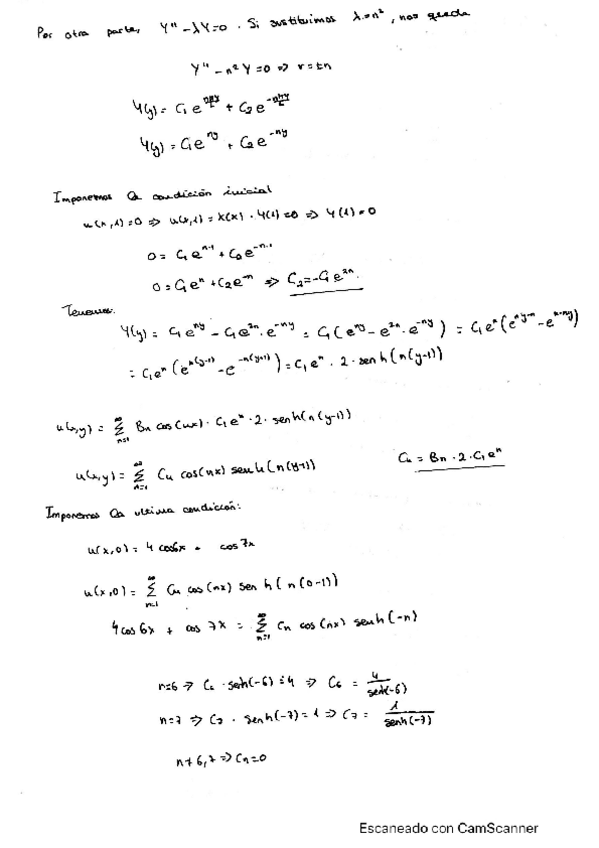 Por otra parte, Y'' - λY = 0. Si sustituimos λ = n², nos queda
Y'' - n²Y = 0 => r = ±n
Y(y) = C₁e + C₂e
Y(y) = C₁e^{ny} + C₂e^{-ny}
Imponemos la condición inicial
u(x,1) = 0 => u(x,1) = X(x) · Y(1) = 0 => Y(1) = 0
0 = C₁e^{n·1} + C₂e^{-n·1}
0 = C₁e^{n} + C₂e^{-n} => C₂ = -C₁e^{2n}.
Tenemos.
Y(y) = C₁e^{ny} - C₁e^{2n}·e^{-ny} = C₁(e^{ny} - e^{2n}·e^{-ny}) = C₁e^{n}(e^{ny-n} - e^{n-ny})
= C₁e^{n}(e^{n(y-1)} - e^{-n(y-1)}) = C₁e^{n} · 2 · senh(n(y-1))
u(x,y) = Σ_{n=1}^{∞} Bn cos(nx) · C₁e^{n} · 2 · senh(n(y-1))
u(x,y) = Σ_{n=1}^{∞} Cn cos(nx) senh(n(y-1)) Cn = Bn · 2 · C₁e^{n}
Imponemos la ultima condicción:
u(x,0) = 4 cos6x + cos7x
u(x,0) = Σ_{n=1}^{∞} Cn cos(nx) senh(n(0-1))
4cos6x + cos7x = Σ_{n=1}^{∞} Cn cos(nx) senh(-n)
n=6 => C₆ · senh(-6) = 4 => C₆ = 4/senh(-6)
n=7 => C₇ · senh(-7) = 1 => C₇ = 1/senh(-7)
n≠6,7 => Cn = 0
Escaneado con CamScanner